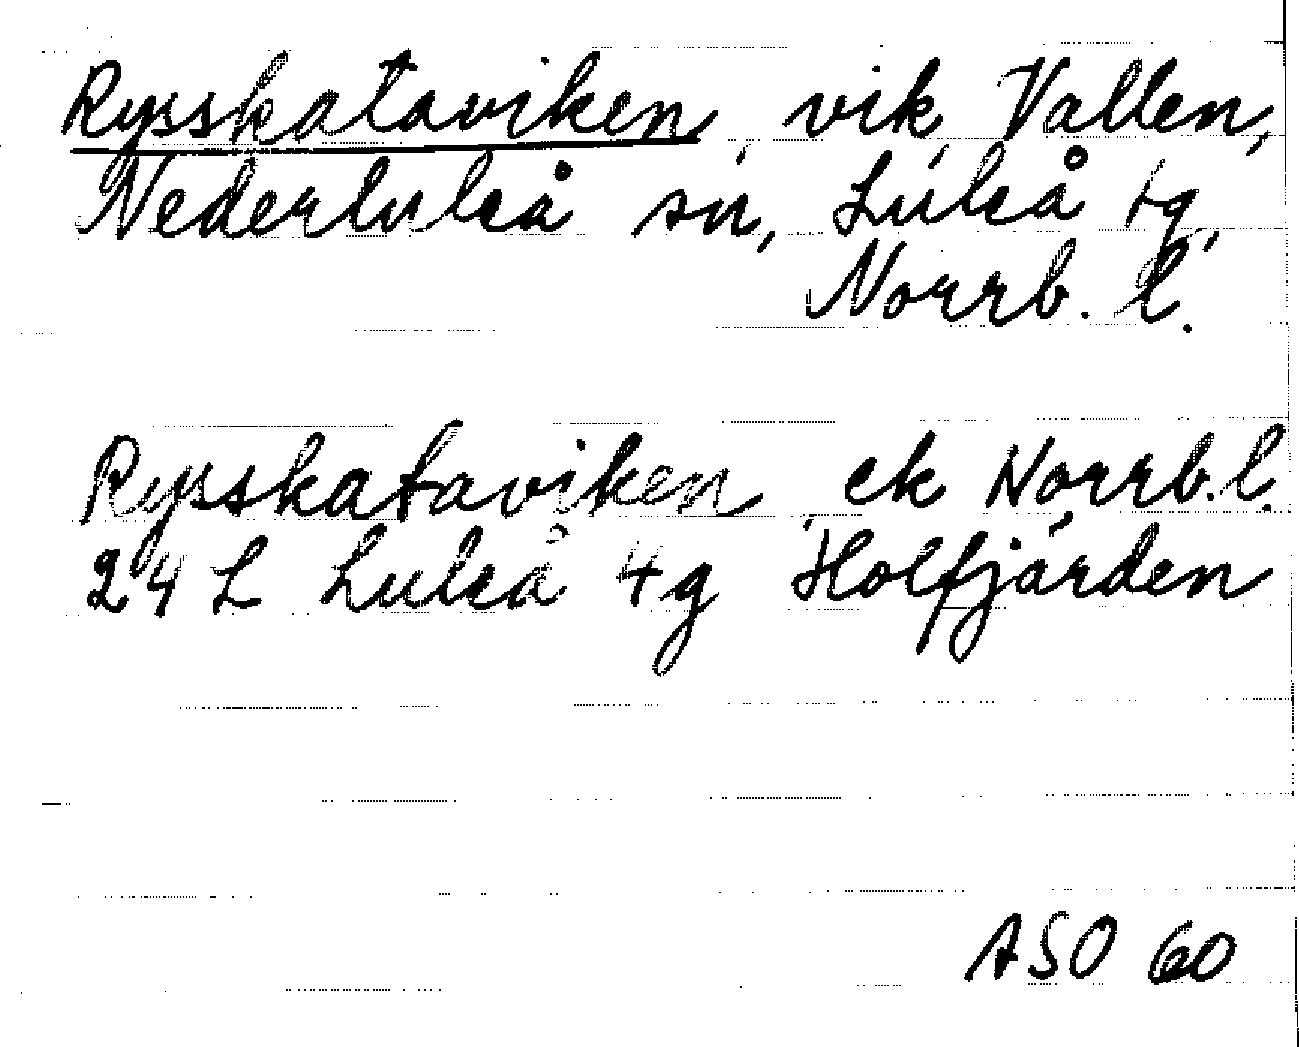 Rysskataviken, vik, Vallen,
Nederluleå sn, Luleå tg,
Norrb. l.
Rysskataviken, ek Norrb. l.
24 L Luleå 4g Holfjärden
ASO 60